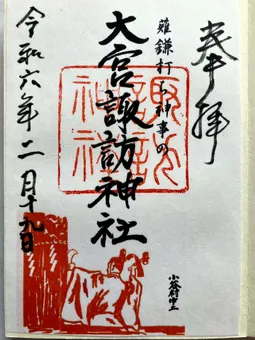 奉拝
薙鎌打ち神事の
大宮諏訪神社
小谷村中土
令和六年二月十九日